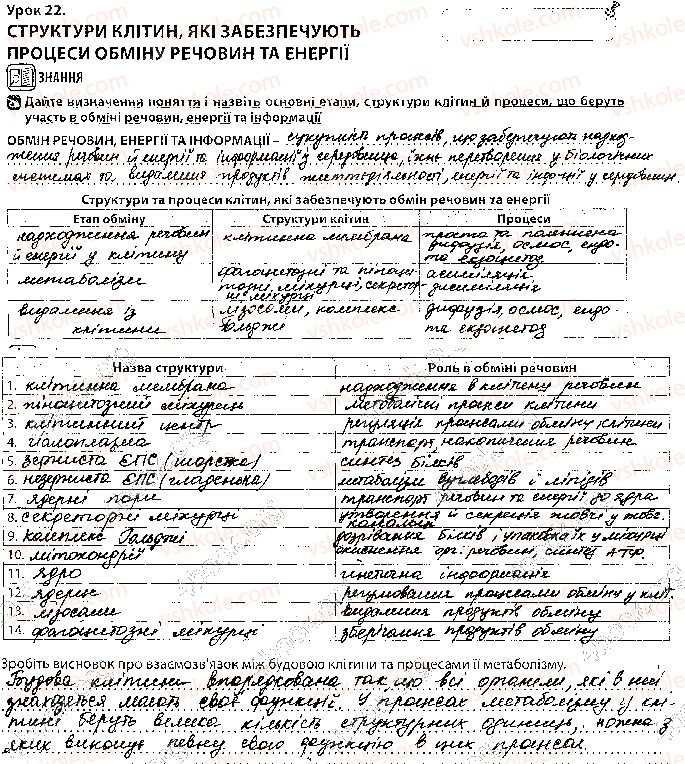 Урок 22.
СТРУКТУРИ КЛІТИН, ЯКІ ЗАБЕЗПЕЧУЮТЬ
ПРОЦЕСИ ОБМІНУ РЕЧОВИН ТА ЕНЕРГІЇ
ЗНАННЯ
Дайте визначення поняття і назвіть основні етапи, структури клітин й процеси, що беруть
участь в обміні речовин, енергії та інформації
ОБМІН РЕЧОВИН, ЕНЕРГІЇ ТА ІНФОРМАЦІЇ – сукупність процесів, що забезпечують надхо-
дження речовин й енергії та інформації у середовища, їхнє перетворення у біологічних
системах та видалення продуктів життєдіяльності, енергії та інф-ції у середовищ.
Структури та процеси клітин, які забезпечують обмін речовин та енергії
Етап обміну Структури клітин Процеси
надходження речовин й енергії у клітину клітинна мембрана проста та полегшена дифузія, осмос, ендо- та екзоцитоз
метаболізм фагоцитозні та піноци- тозні міхурці, секрет- ні міхурці асиміляція дисиміляція
видалення із клітини лізосоми, комплекс Гольджі дифузія, осмос, ендо- та екзоцитоз
Назва структури Роль в обміні речовин
1. клітинна мембрана надходження в клітину речовин
2. піноцитозний міхурець метаболічні процеси клітини
3. клітинний центр регуляція процесами обміну клітини
4. гіалоплазма транспорт, накопичення речовин
5. зерниста ЄПС (шорстка) синтез білків
6. незерниста ЄПС (гладенька) метаболізм вуглеводів і ліпідів
7. ядерні пори транспорт речовин та енергії до ядра
8. секреторні міхурці утворення й секреція жовчі у жовч. канальці
9. комплекс Гольджі дозрівання білків і упаковка їх у міхурці
10. мітохондрії окиснення орг. речовин, синтез АТФ
11. ядро генетична інформація
12. ядерце регулювання процесами обміну у кліт.
13. лізосоми видалення продуктів обміну
14. фагоцитозні міхурці зберігання продуктів обміну
Зробіть висновок про взаємозв'язок між будовою клітини та процесами її метаболізму.
Будова клітини впорядкована так, що всі органели, які в ній
знаходяться мають свої функції. У процесах метаболізму у клі-
тині беруть велика кількість структурних одиниць, кожна з
яких виконує певну свою функцію в цих процесах